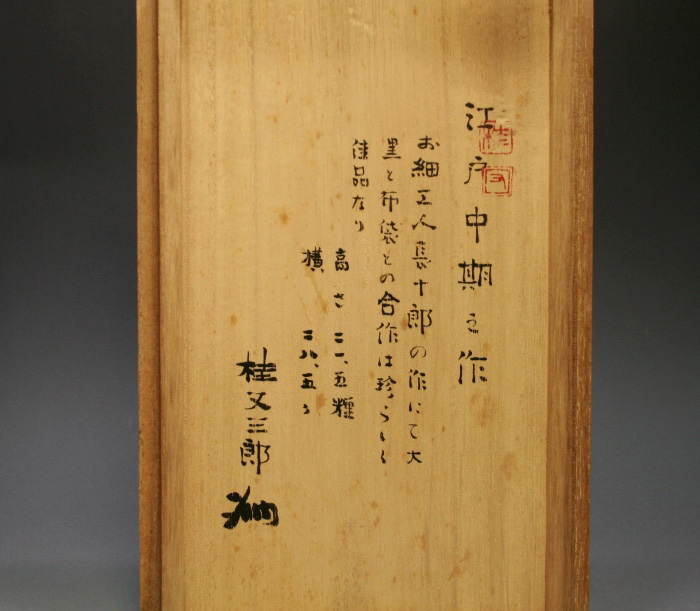 江戸中期之作
お細工人長十郎の作にて大
黒と布袋との合作は珍らしく
佳品なり
高さ二一、五糎
横 二八、五〃
桂又三郎